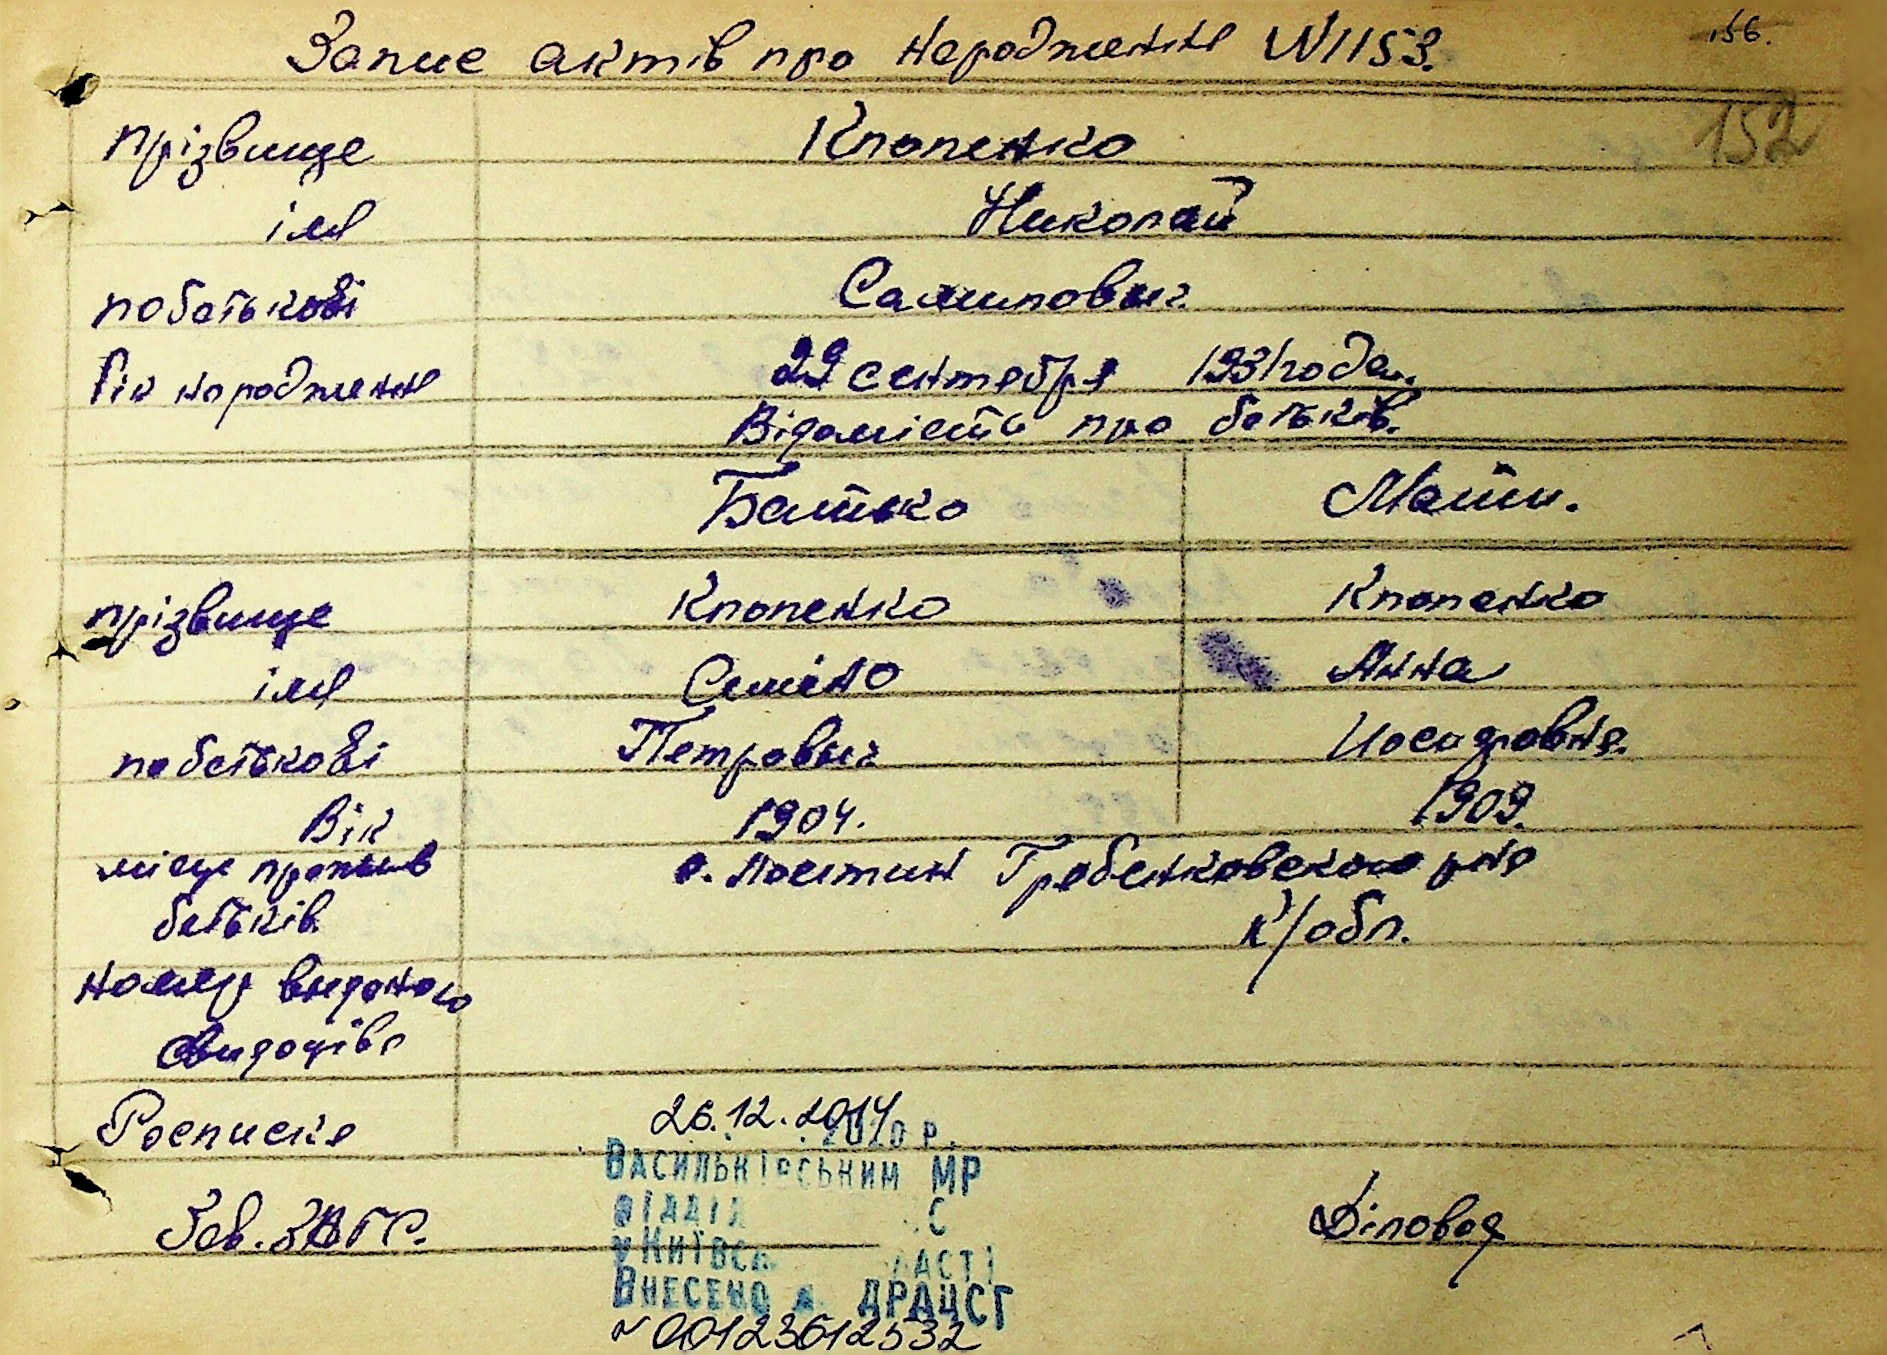 Запис актів про народження №1153.
156.
152
прізвище Клопенко
імя Николай
по батькові Самилович.
Рік народження 29 сентября 1931 года.
Відомість про батьків.
Батько Мати.
прізвище Клопенко Клопенко
імя Семёно Анна
по батькові Петрович Иосифовня.
Вік 1904. 1909.
місце прожив с. Лостин Гребенковского рня
батьків К/обл.
номер виданого
свидоцтва
Росписка 26.12.2014
2020 р.
Васильківським МР
відділ С
у Київськ ласті
Внесено д ДРАЦСГ
N 00123612532
Зав. ЗАГС. Діловод